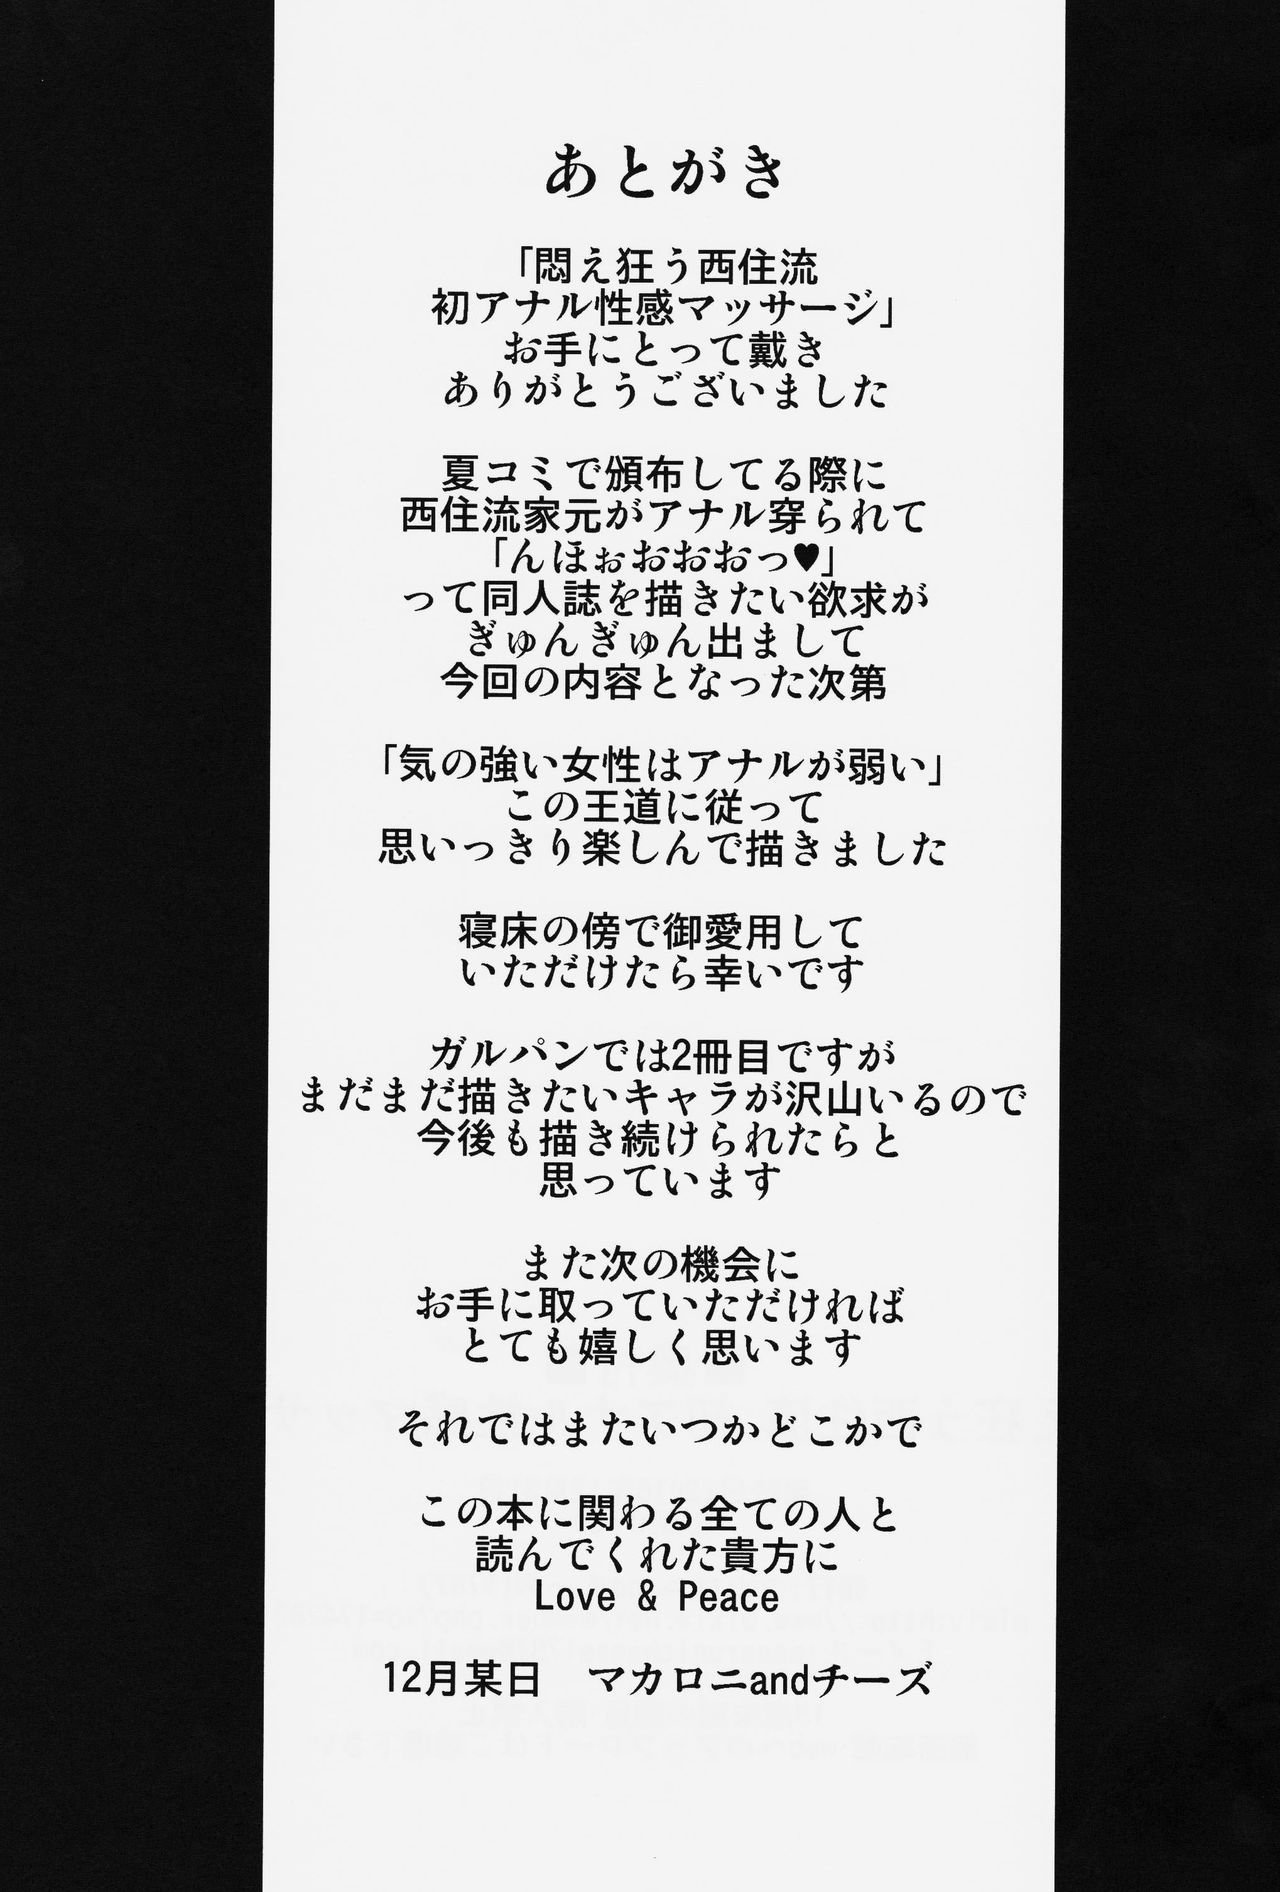 あとがき
「悶え狂う西住流
初アナル性感マッサージ」
お手にとって戴き
ありがとうございました
夏コミで頒布してる際に
西住流家元がアナル穿られて
「んほぉおおおっ♥」
って同人誌を描きたい欲求が
ぎゅんぎゅん出まして
今回の内容となった次第
「気の強い女性はアナルが弱い」
この王道に従って
思いっきり楽しんで描きました
寝床の傍で御愛用して
いただけたら幸いです
ガルパンでは2冊目ですが
まだまだ描きたいキャラが沢山いるので
今後も描き続けられたらと
思っています
また次の機会に
お手に取っていただければ
とても嬉しく思います
それではまたいつかどこかで
この本に関わる全ての人と
読んでくれた貴方に
Love & Peace
12月某日　マカロニandチーズ